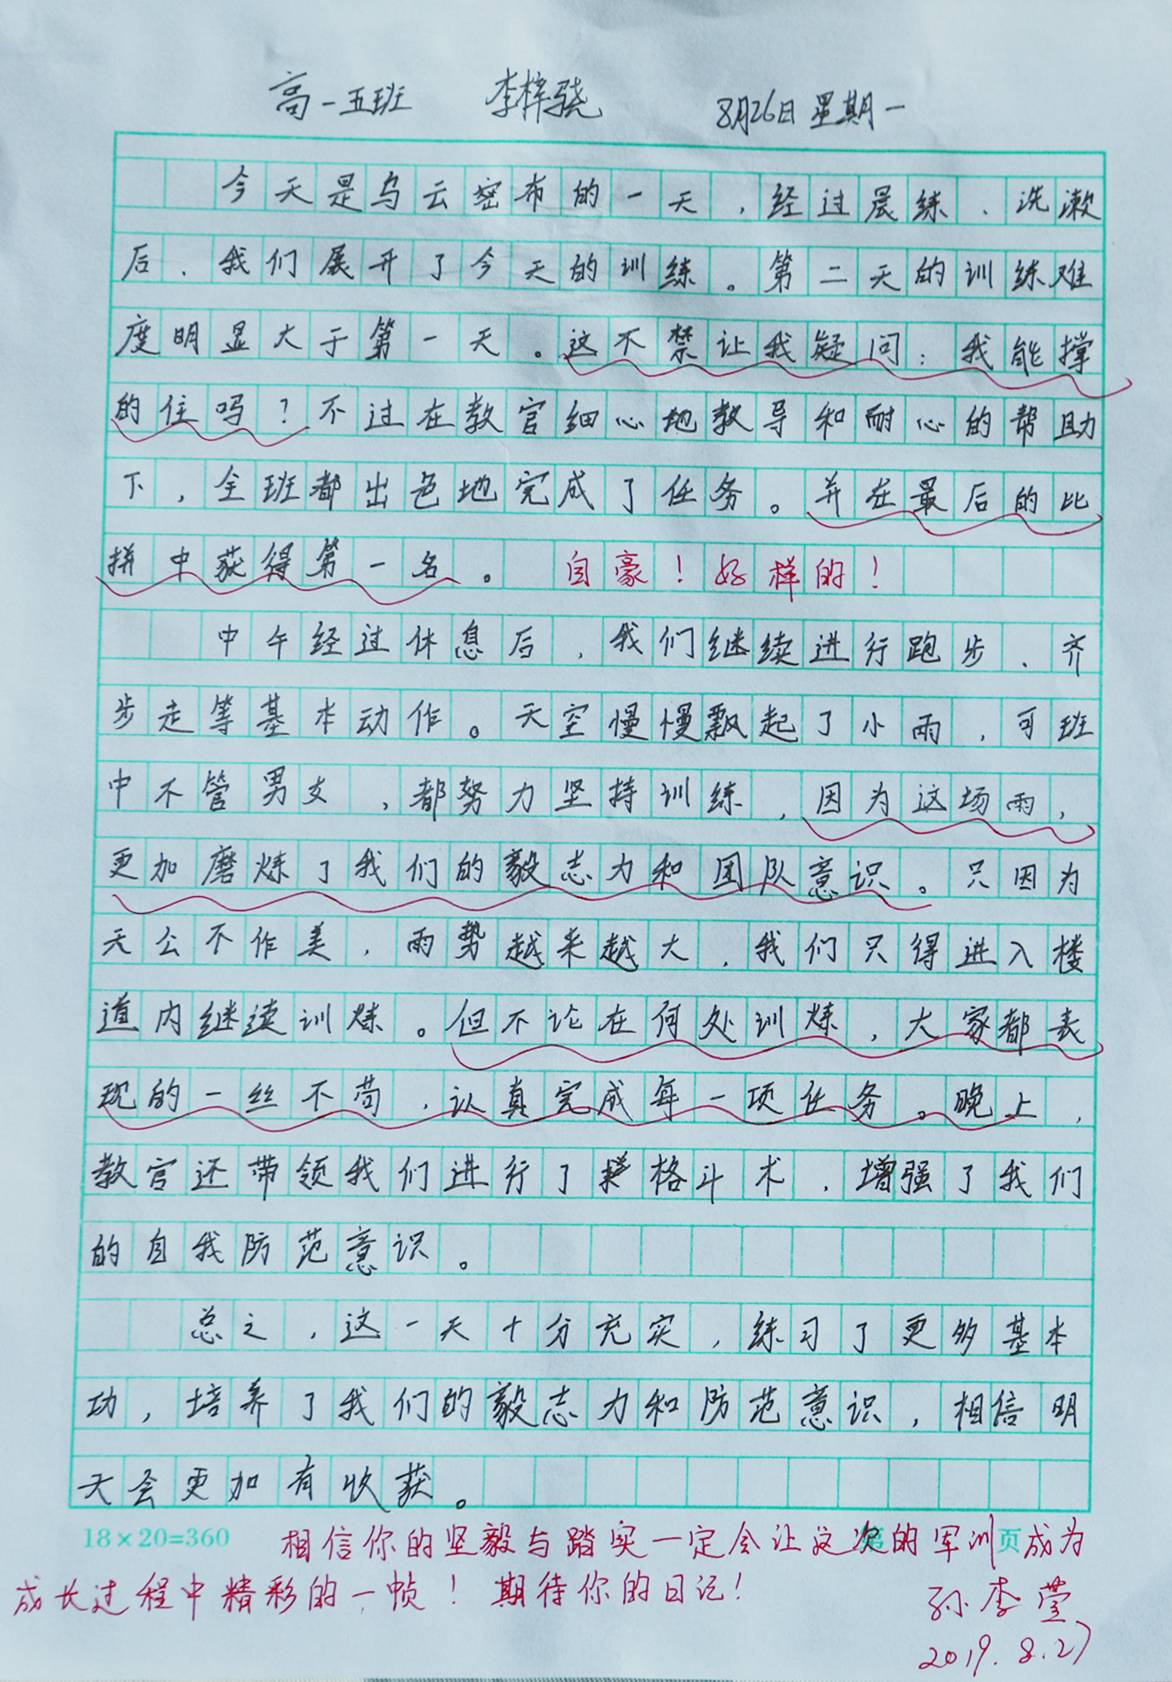 高一五班 李梓骁 8月26日 星期一
今天是乌云密布的一天，经过晨练、洗漱
后、我们展开了今天的训练。第二天的训练难
度明显大于第一天。这不禁让我疑问：我能撑
的住吗？不过在教官细心地教导和耐心的帮助
下，全班都出色地完成了任务。并在最后的比
拼中获得第一名。 自豪！好样的！
中午经过休息后，我们继续进行跑步、齐
步走等基本动作。天空慢慢飘起了小雨，可班
中不管男女，都努力坚持训练，因为这场雨，
更加磨炼了我们的毅志力和团队意识。只因为
天公不作美，雨势越来越大，我们只得进入楼
道内继续训炼。但不论在何处训炼，大家都表
现的一丝不苟，认真完成每一项任务。晚上，
教官还带领我们进行了格斗术，增强了我们
的自我防范意识。
总之，这一天十分充实，练习了更多基本
功，培养了我们的毅志力和防范意识，相信明
天会更加有收获。
18×20=360 相信你的坚毅与踏实一定会让这次的军训成为
第 页
成长过程中精彩的一帧！期待你的日记！
孙李萱
2019.8.27